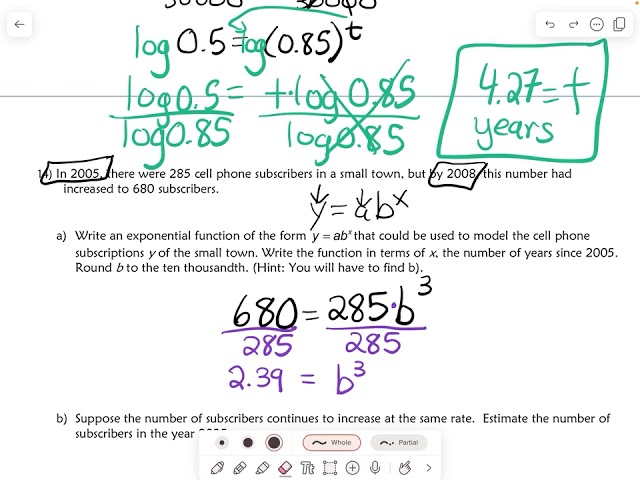 log 0.5 = log (0.85)^t
log 0.5 = t·log 0.85
log 0.85 log 0.85
4.27 = t
years
14) In 2005, there were 285 cell phone subscribers in a small town, but by 2008, this number had
increased to 680 subscribers.
y = ab^x
a) Write an exponential function of the form y = ab^x that could be used to model the cell phone
subscriptions y of the small town. Write the function in terms of x, the number of years since 2005.
Round b to the ten thousandth. (Hint: You will have to find b).
680 = 285·b^3
285 285
2.39 = b^3
b) Suppose the number of subscribers continues to increase at the same rate. Estimate the number of
subscribers in the year
Whole Partial
Tt